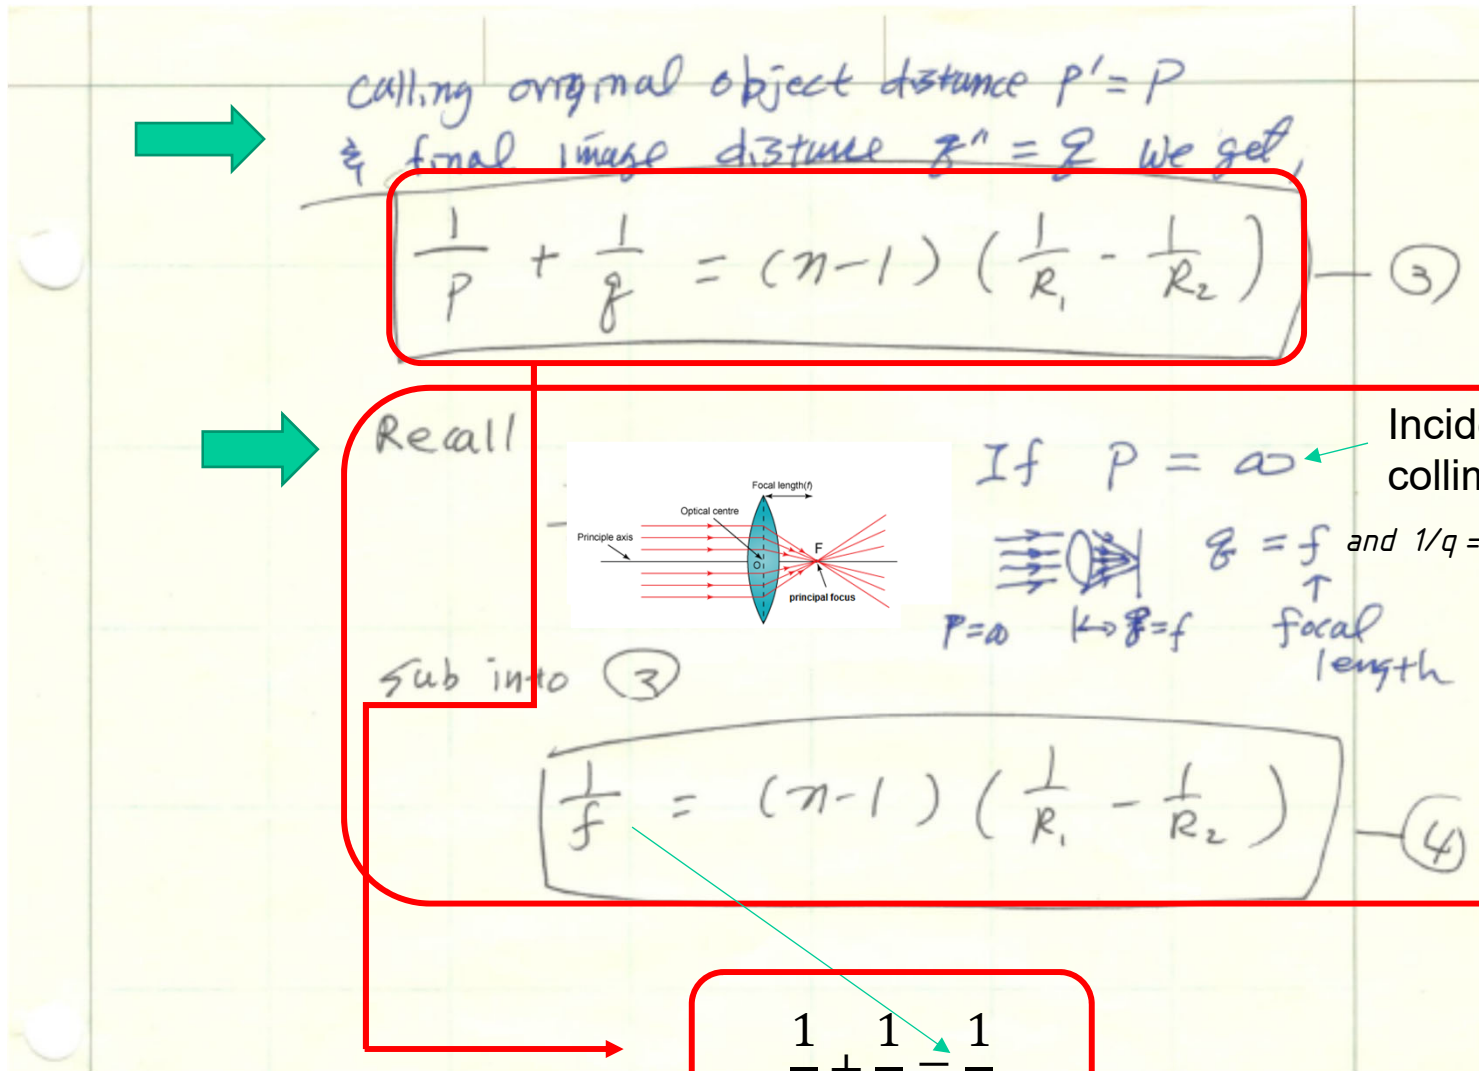 Calling original object distance p' = p
& final image distance q" = q we get,
1/p + 1/q = (n-1) ( 1/R₁ - 1/R₂ ) — ③
Recall
Focal length(f)
Optical centre
Principle axis
O
F
principal focus
If p = ∞
Incid
collin
q = f and 1/q =
↑
p=∞ q=f focal
length
Sub into ③
1/f = (n-1) ( 1/R₁ - 1/R₂ ) — ④
1 + 1 = 1